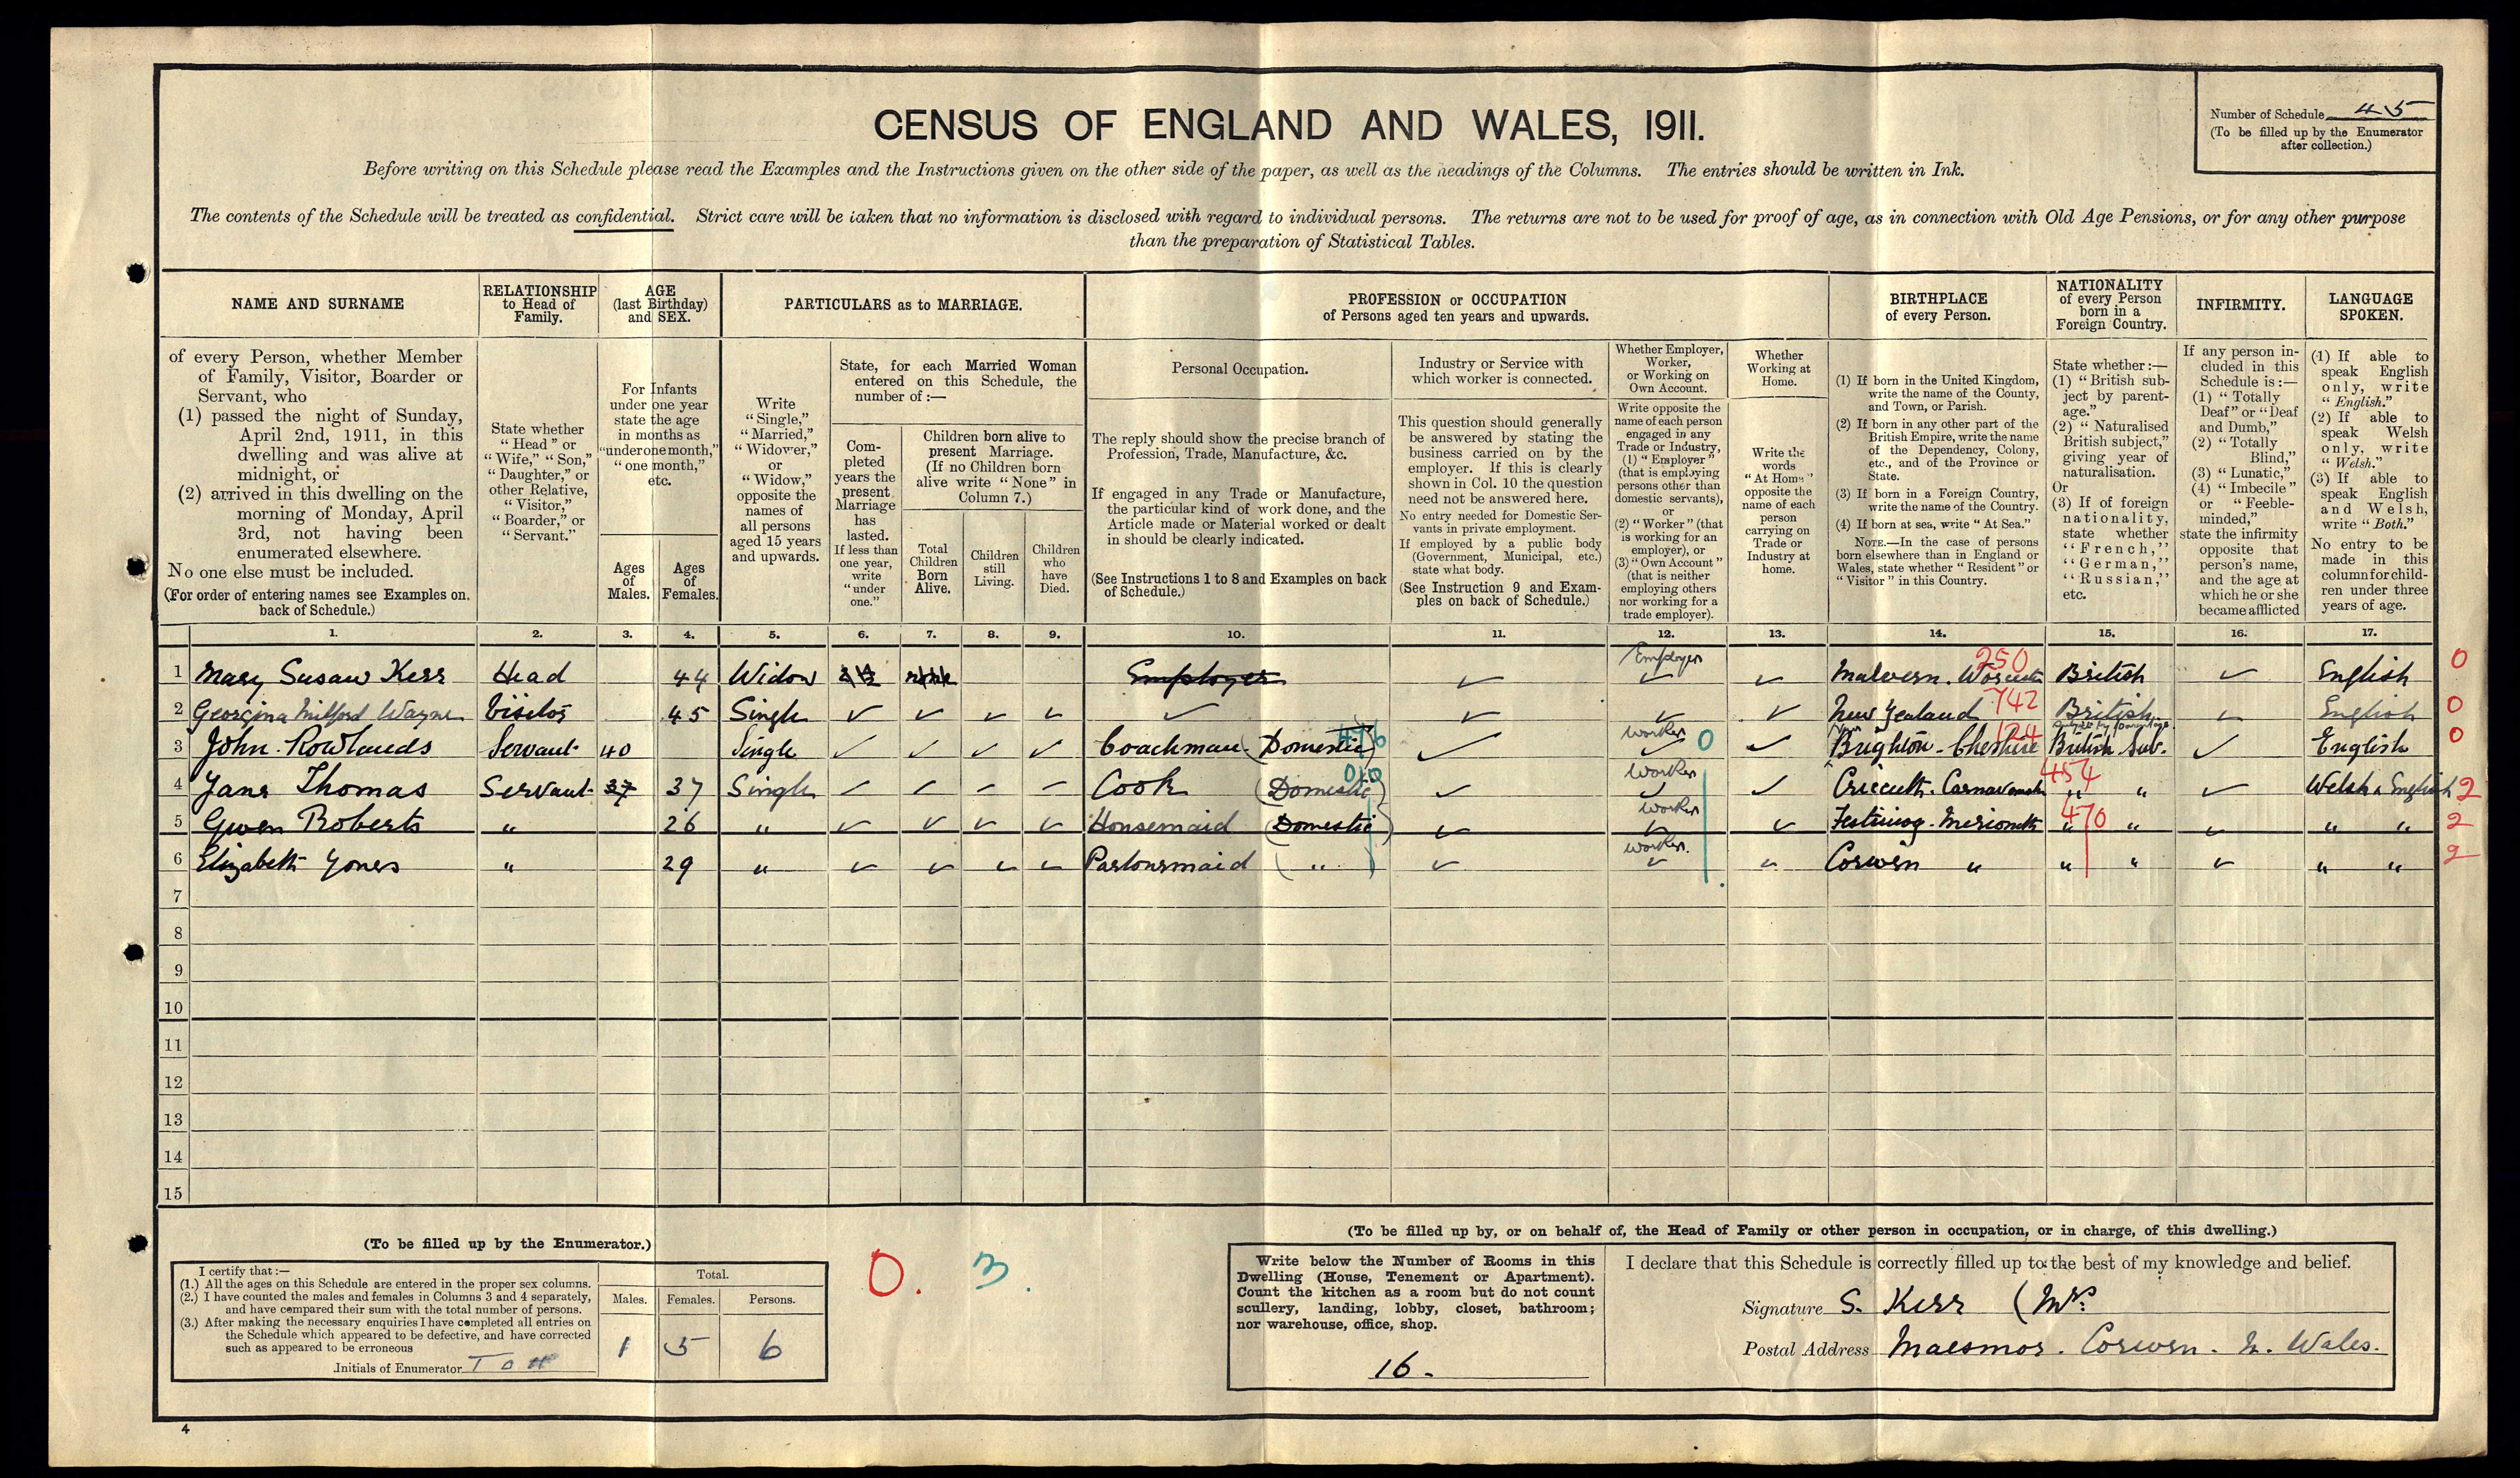 Number of Schedule 45
(To be filled up by the Enumerator
after collection.)
CENSUS OF ENGLAND AND WALES, 1911.
Before writing on this Schedule please read the Examples and the Instructions given on the other side of the paper, as well as the headings of the Columns. The entries should be written in Ink.
The contents of the Schedule will be treated as confidential. Strict care will be taken that no information is disclosed with regard to individual persons. The returns are not to be used for proof of age, as in connection with Old Age Pensions, or for any other purpose
than the preparation of Statistical Tables.
NAME AND SURNAME
of every Person, whether Member
of Family, Visitor, Boarder or
Servant, who
(1) passed the night of Sunday,
April 2nd, 1911, in this
dwelling and was alive at
midnight, or
(2) arrived in this dwelling on the
morning of Monday, April
3rd, not having been
enumerated elsewhere.
No one else must be included.
(For order of entering names see Examples on
back of Schedule.)
RELATIONSHIP
to Head of
Family.
State whether
"Head" or
"Wife," "Son,"
"Daughter," or
other Relative,
"Visitor,"
"Boarder," or
"Servant."
AGE
(last Birthday)
and SEX.
For Infants
under one year
state the age
in months as
"under one month,"
"one month,"
etc.
Ages
of
Males.
Ages
of
Females.
PARTICULARS as to MARRIAGE.
Write
"Single,"
"Married,"
"Widower,"
or
"Widow,"
opposite the
names of
all persons
aged 15 years
and upwards.
State, for each Married Woman
entered on this Schedule, the
number of :—
Com-
pleted
years the
present
Marriage
has
lasted.
If less than
one year,
write
"under
one."
Children born alive to
present Marriage.
(If no Children born
alive write "None" in
Column 7.)
Total
Children
Born
Alive.
Children
still
Living.
Children
who
have
Died.
PROFESSION or OCCUPATION
of Persons aged ten years and upwards.
Personal Occupation.
The reply should show the precise branch of
Profession, Trade, Manufacture, &c.
If engaged in any Trade or Manufacture,
the particular kind of work done, and the
Article made or Material worked or dealt
in should be clearly indicated.
(See Instructions 1 to 8 and Examples on back
of Schedule.)
Industry or Service with
which worker is connected.
This question should generally
be answered by stating the
business carried on by the
employer. If this is clearly
shown in Col. 10 the question
need not be answered here.
No entry needed for Domestic Ser-
vants in private employment.
If employed by a public body
(Government, Municipal, etc.)
state what body.
(See Instruction 9 and Exam-
ples on back of Schedule.)
Whether Employer,
Worker,
or Working on
Own Account.
Write opposite the
name of each person
engaged in any
Trade or Industry,
(1) "Employer"
(that is employing
persons other than
domestic servants),
or
(2) "Worker" (that
is working for an
employer), or
(3) "Own Account"
(that is neither
employing others
nor working for a
trade employer).
Whether
Working at
Home.
Write the
words
"At Home"
opposite the
name of each
person
carrying on
Trade or
Industry at
home.
BIRTHPLACE
of every Person.
(1) If born in the United Kingdom,
write the name of the County,
and Town, or Parish.
(2) If born in any other part of the
British Empire, write the name
of the Dependency, Colony,
etc., and of the Province or
State.
(3) If born in a Foreign Country,
write the name of the Country.
(4) If born at sea, write "At Sea."
NOTE.—In the case of persons
born elsewhere than in England or
Wales, state whether "Resident" or
"Visitor" in this Country.
NATIONALITY
of every Person
born in a
Foreign Country.
State whether :—
(1) "British sub-
ject by parent-
age."
(2) "Naturalised
British subject,"
giving year of
naturalisation.
Or
(3) If of foreign
nationality,
state whether
"French,"
"German,"
"Russian,"
etc.
INFIRMITY.
If any person in-
cluded in this
Schedule is :—
(1) "Totally
Deaf" or "Deaf
and Dumb,"
(2) "Totally
Blind,"
(3) "Lunatic,"
(4) "Imbecile"
or "Feeble-
minded,"
state the infirmity
opposite that
person's name,
and the age at
which he or she
became afflicted
LANGUAGE
SPOKEN.
(1) If able to
speak English
only, write
"English."
(2) If able to
speak Welsh
only, write
"Welsh."
(3) If able to
speak English
and Welsh,
write "Both."
No entry to be
made in this
column for child-
ren under three
years of age.
1. 2. 3. 4. 5. 6. 7. 8. 9. 10. 11. 12. 13. 14. 15. 16. 17.
1 Mary Susan Kerr Head 44 Widow none Employer Employer Malvern. Worcester 250 British English 0
2 Georgina Milford Wayne Visitor 45 Single New Zealand 742 British English 0
3 John Rowlands Servant 40 Single Coachman (Domestic) 476 Worker 0 New Brighton - Cheshire 124 British Sub. English 0
4 Jane Thomas Servant 37 37 Single Cook (Domestic) Worker Criccieth. Carnarvonshire 454 " " Welsh & English 2
5 Gwen Roberts " 26 " Housemaid (Domestic) Worker Festiniog. Merioneth 470 " " " " 2
6 Elizabeth Jones " 29 " Parlourmaid ( " ) Worker. Corwen " " " " " 2
7
8
9
10
11
12
13
14
15
(To be filled up by the Enumerator.)
I certify that :—
(1.) All the ages on this Schedule are entered in the proper sex columns.
(2.) I have counted the males and females in Columns 3 and 4 separately,
and have compared their sum with the total number of persons.
(3.) After making the necessary enquiries I have completed all entries on
the Schedule which appeared to be defective, and have corrected
such as appeared to be erroneous
Initials of Enumerator
Total.
Males. Females. Persons.
1 5 6
0. 3.
(To be filled up by, or on behalf of, the Head of Family or other person in occupation, or in charge, of this dwelling.)
Write below the Number of Rooms in this
Dwelling (House, Tenement or Apartment).
Count the kitchen as a room but do not count
scullery, landing, lobby, closet, bathroom;
nor warehouse, office, shop.
16.
I declare that this Schedule is correctly filled up to the best of my knowledge and belief.
Signature S. Kerr (Mrs
Postal Address Maesmor. Corwen. N. Wales.
4